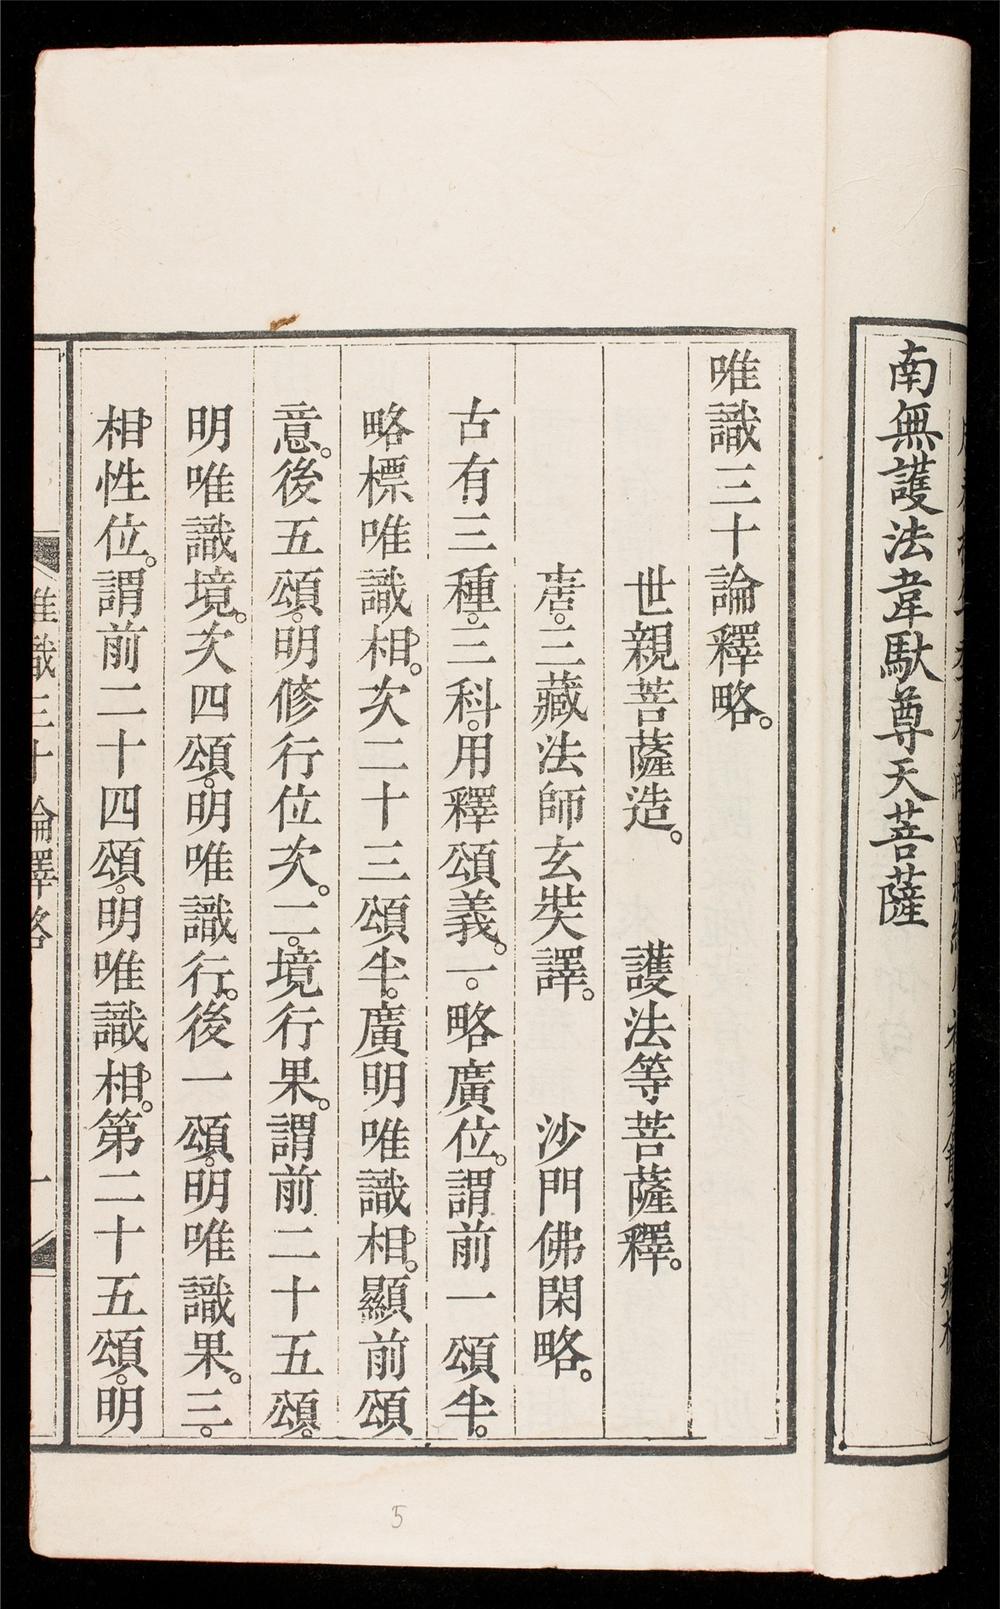 南無護法韋馱尊天菩薩
唯識三十論釋略。
世親菩薩造。　護法等菩薩釋。
唐。三藏法師玄奘譯。　沙門佛閑略。
古有三種。三科。用釋頌義。一。略廣位。謂前一頌半。
略標唯識相。次二十三頌半。廣明唯識相。顯前頌
意。後五頌。明修行位次。二。境行果。謂前二十五頌。
明唯識境。次四頌。明唯識行。後一頌。明唯識果。三。
相性位。謂前二十四頌。明唯識相。第二十五頌。明
唯識三十論釋略
一
5